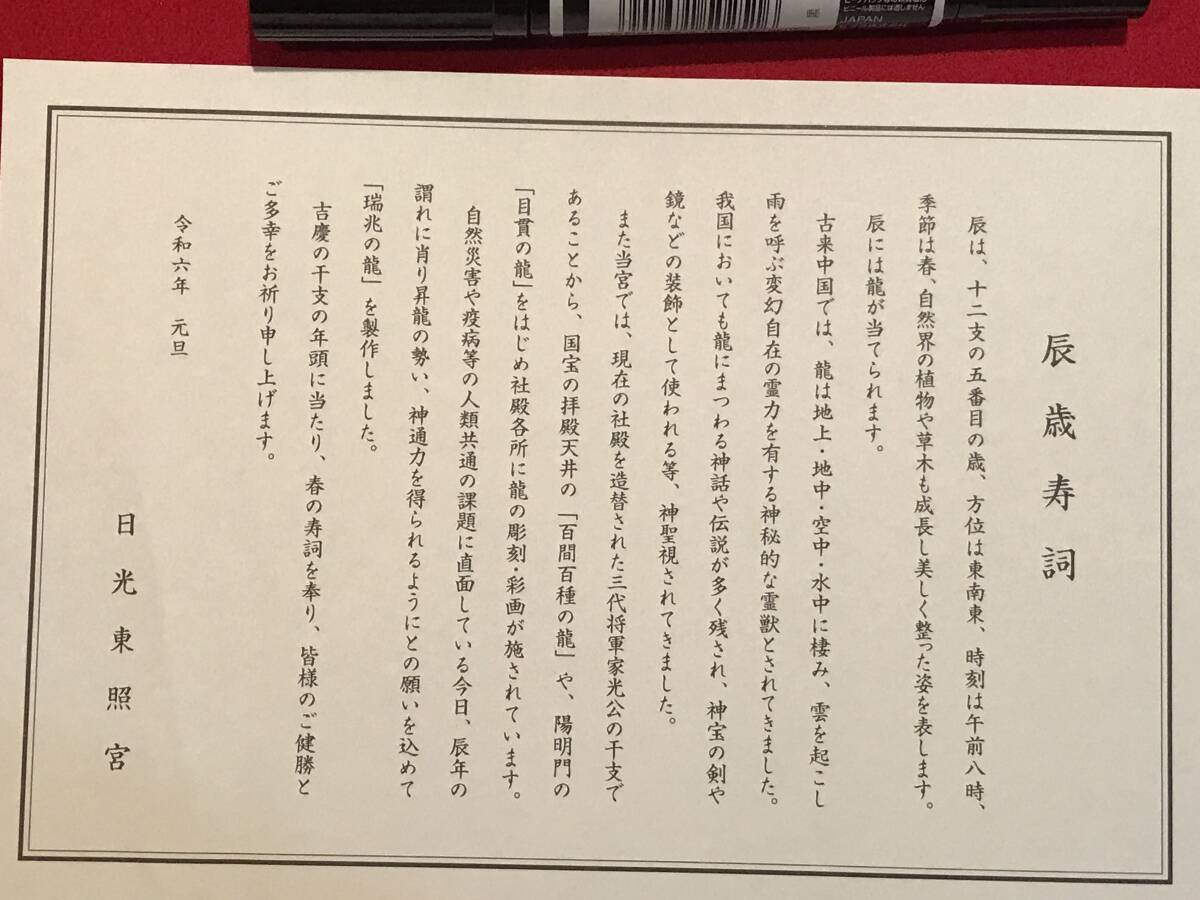 辰歳寿詞
辰は、十二支の五番目の歳、方位は東南東、時刻は午前八時、
季節は春、自然界の植物や草木も成長し美しく整った姿を表します。
辰には龍が当てられます。
古来中国では、龍は地上・地中・空中・水中に棲み、雲を起こし
雨を呼ぶ変幻自在の霊力を有する神秘的な霊獣とされてきました。
我国においても龍にまつわる神話や伝説が多く残され、神宝の剣や
鏡などの装飾として使われる等、神聖視されてきました。
また当宮では、現在の社殿を造替された三代将軍家光公の干支で
あることから、国宝の拝殿天井の「百間百種の龍」や、陽明門の
「目貫の龍」をはじめ社殿各所に龍の彫刻・彩画が施されています。
自然災害や疫病等の人類共通の課題に直面している今日、辰年の
謂れに肖り昇龍の勢い、神通力を得られるようにとの願いを込めて
「瑞兆の龍」を製作しました。
吉慶の干支の年頭に当たり、春の寿詞を奉り、皆様のご健勝と
ご多幸をお祈り申し上げます。
令和六年　元旦
日光東照宮
ビニール製品には適しません
JAPAN